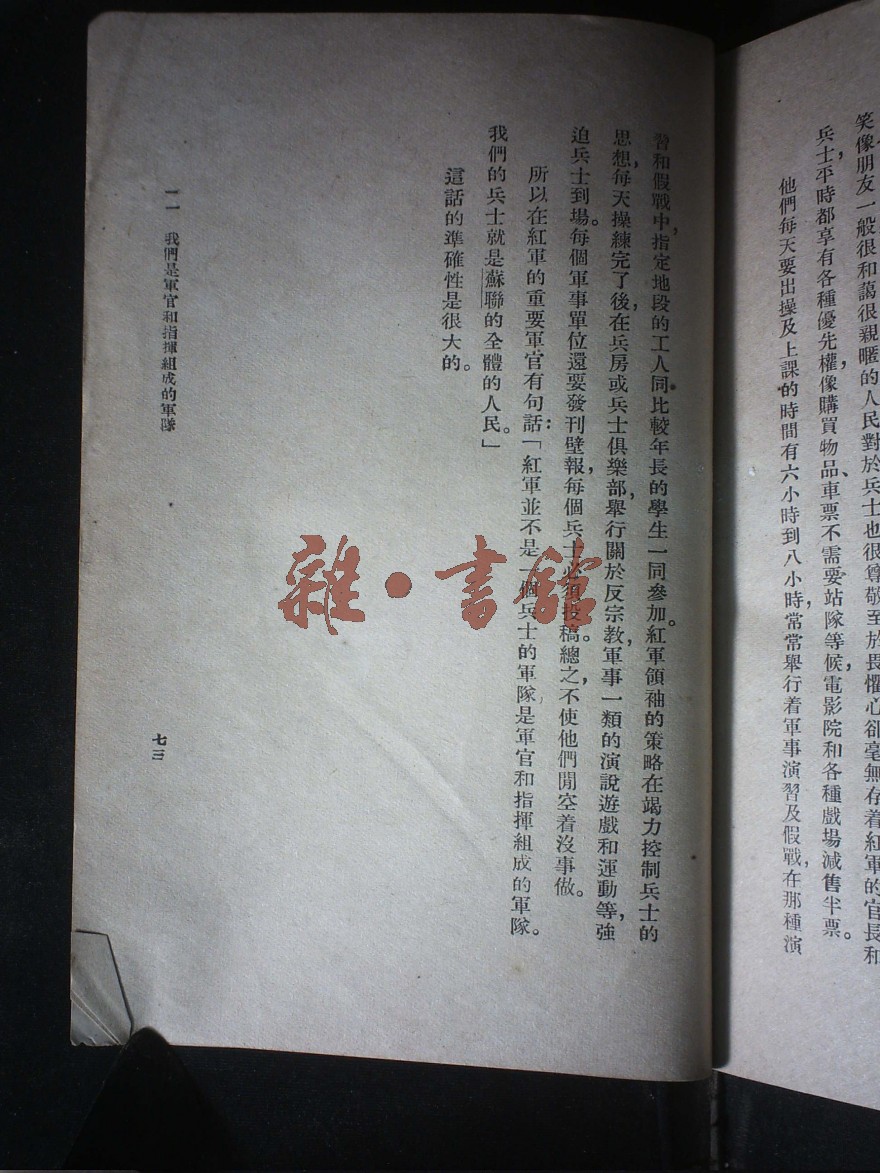 笑,像朋友一般很和藹很親暱的人民對於兵士也很尊敬至於畏懼心卻毫無存着紅軍的官長和
兵士,平時都享有各種優先權,像購買物品、車票不需要站隊等候,電影院和各種戲場減售半票。
他們每天要出操及上課的時間有六小時到八小時,常常舉行着軍事演習及假戰,在那種演
習和假戰中,指定地段的工人同比較年長的學生一同參加。紅軍領袖的策略在竭力控制兵士的
思想,每天操練完了後,在兵房或兵士俱樂部,舉行關於反宗教,軍事一類的演說遊戲和運動等,強
迫兵士到場。每個軍事單位還要發刊壁報,每個兵士必須投稿。總之,不使他們閒空着沒事做。
所以在紅軍的重要軍官有句話:「紅軍並不是一個兵士的軍隊,是軍官和指揮組成的軍隊。
我們的兵士就是蘇聯的全體的人民。」
這話的準確性是很大的。
一一 我們是軍官和指揮組成的軍隊
七三
雜·書館